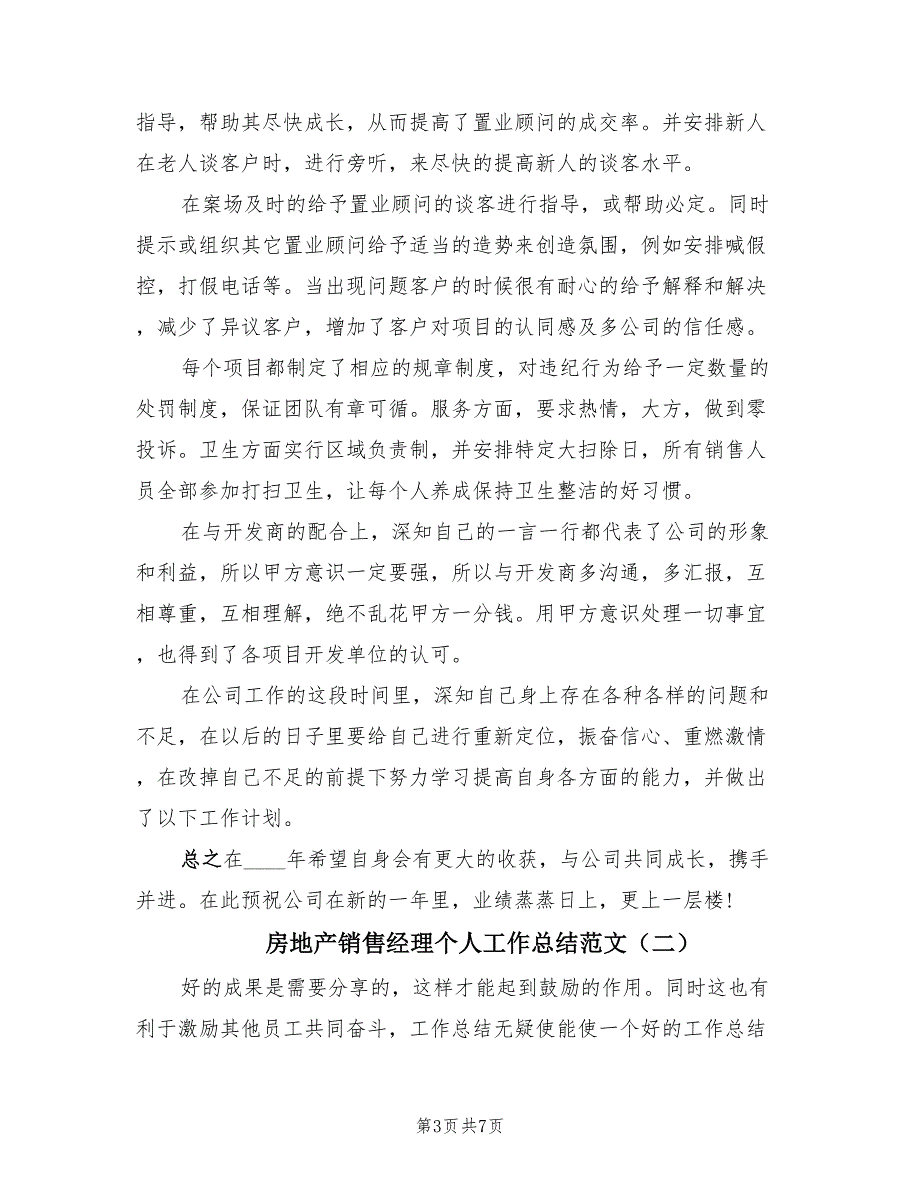 指导，帮助其尽快成长，从而提高了置业顾问的成交率。并安排新人
在老人谈客户时，进行旁听，来尽快的提高新人的谈客水平。
在案场及时的给予置业顾问的谈客进行指导，或帮助必定。同时
提示或组织其它置业顾问给予适当的造势来创造氛围，例如安排喊假
控，打假电话等。当出现问题客户的时候很有耐心的给予解释和解决
，减少了异议客户，增加了客户对项目的认同感及多公司的信任感。
每个项目都制定了相应的规章制度，对违纪行为给予一定数量的
处罚制度，保证团队有章可循。服务方面，要求热情，大方，做到零
投诉。卫生方面实行区域负责制，并安排特定大扫除日，所有销售人
员全部参加打扫卫生，让每个人养成保持卫生整洁的好习惯。
在与开发商的配合上，深知自己的一言一行都代表了公司的形象
和利益，所以甲方意识一定要强，所以与开发商多沟通，多汇报，互
相尊重，互相理解，绝不乱花甲方一分钱。用甲方意识处理一切事宜
，也得到了各项目开发单位的认可。
在公司工作的这段时间里，深知自己身上存在各种各样的问题和
不足，在以后的日子里要给自己进行重新定位，振奋信心、重燃激情
，在改掉自己不足的前提下努力学习提高自身各方面的能力，并做出
了以下工作计划。
总之在____年希望自身会有更大的收获，与公司共同成长，携手
并进。在此预祝公司在新的一年里，业绩蒸蒸日上，更上一层楼!
房地产销售经理个人工作总结范文（二）
好的成果是需要分享的，这样才能起到鼓励的作用。同时这也有
利于激励其他员工共同奋斗，工作总结无疑使能使一个好的工作总结
第3页共7页